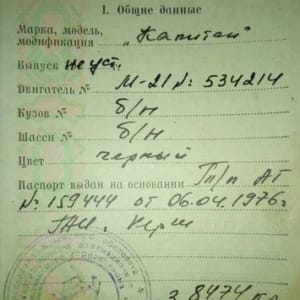 I. Общие данные
Марка, модель,
модификация „Капитан"
Выпуск не уст.
Двигатель № М-21 № 534214
Кузов № б/н
Шасси № б/н
Цвет черный
Паспорт выдан на основании Т/п АГ
№ 159444 от 06.04.1976г
ГАИ г.
8474